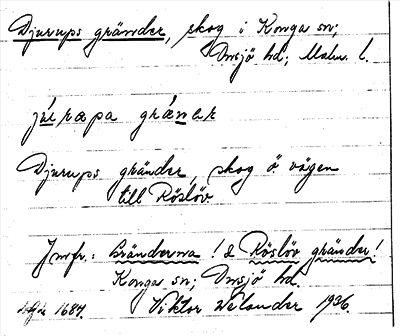 Djurups gränder, skog i Konga sn;
Onsjö hd; Malm. l.
júrapa grǽnar
Djurups gränder, skog ö. vägen
till Röslöv
Jmfr.: Gränderna! & Röslöv gränder!
Konga sn; Onsjö hd.
1684. Viktor Welander 1936.